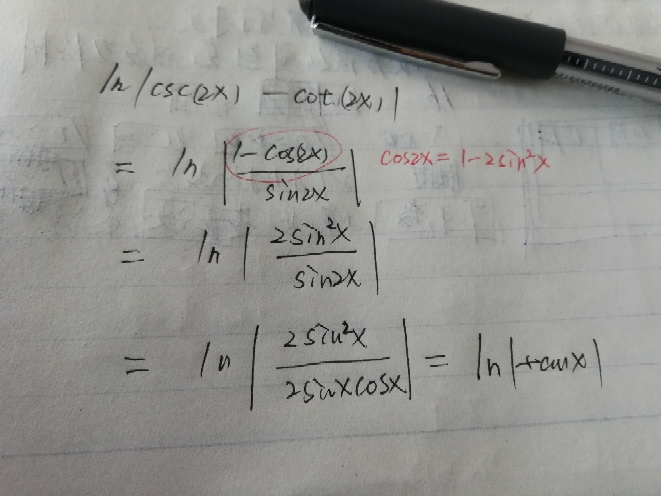 ln|csc(2x) - cot(2x)|
= ln |(1-cos(2x))/(sin2x)| cos2x = 1-2sin²x
= ln |(2sin²x)/(sin2x)|
= ln |(2sin²x)/(2sinxcosx)| = ln|tanx|